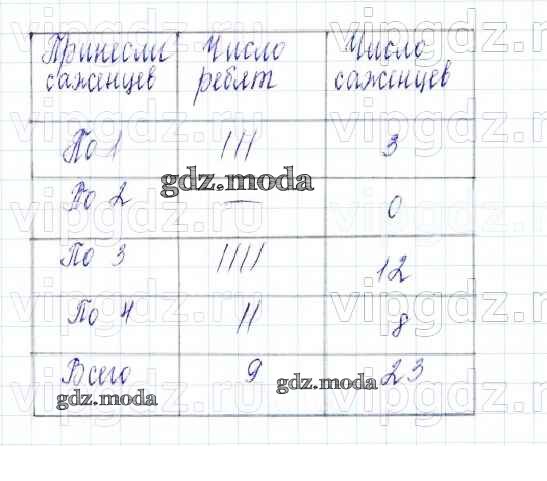 Принесли саженцев | Число ребят | Число саженцев
По 1 | ||| | 3
По 2 | — | 0
По 3 | |||| | 12
По 4 | || | 8
Всего | 9 | 23
gdz.moda
gdz.moda
gdz.moda
vipgdz.ru